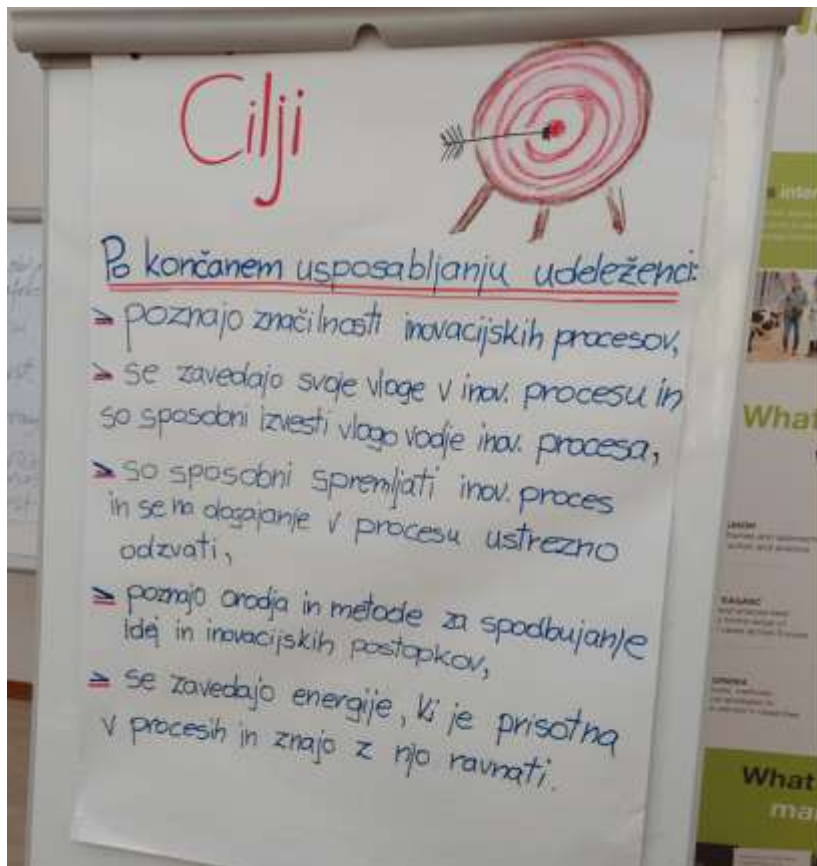 Cilji
Po končanem usposabljanju udeleženci:
poznajo značilnosti inovacijskih procesov,
se zavedajo svoje vloge v inov. procesu in
so sposobni izvesti vlogo vodje inov. procesa,
so sposobni spremljati inov. proces
in se na dogajanje v procesu ustrezno
odzvati,
poznajo orodja in metode za spodbujanje
idej in inovacijskih postopkov,
se zavedajo energije, ki je prisotna
v procesih in znajo z njo ravnati.
What
What
ma